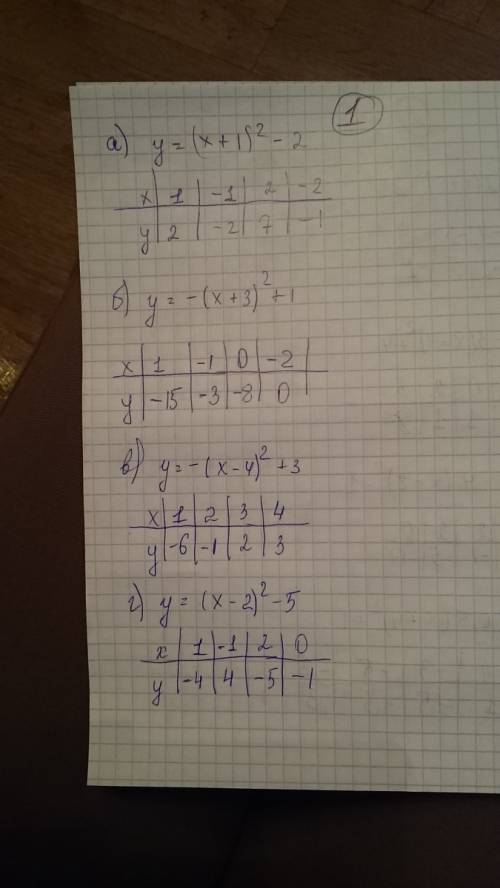 1
а) y = (x+1)² - 2
x 1 -1 2 -2
y 2 -2 7 -1
б) y = -(x+3)² + 1
x 1 -1 0 -2
y -15 -3 -8 0
в) y = -(x-4)² + 3
x 1 2 3 4
y -6 -1 2 3
г) y = (x-2)² - 5
x 1 -1 2 0
y -4 4 -5 -1